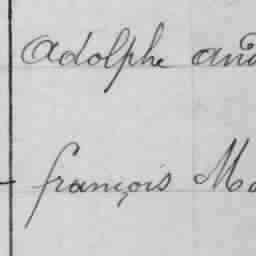 Adolphe
françois